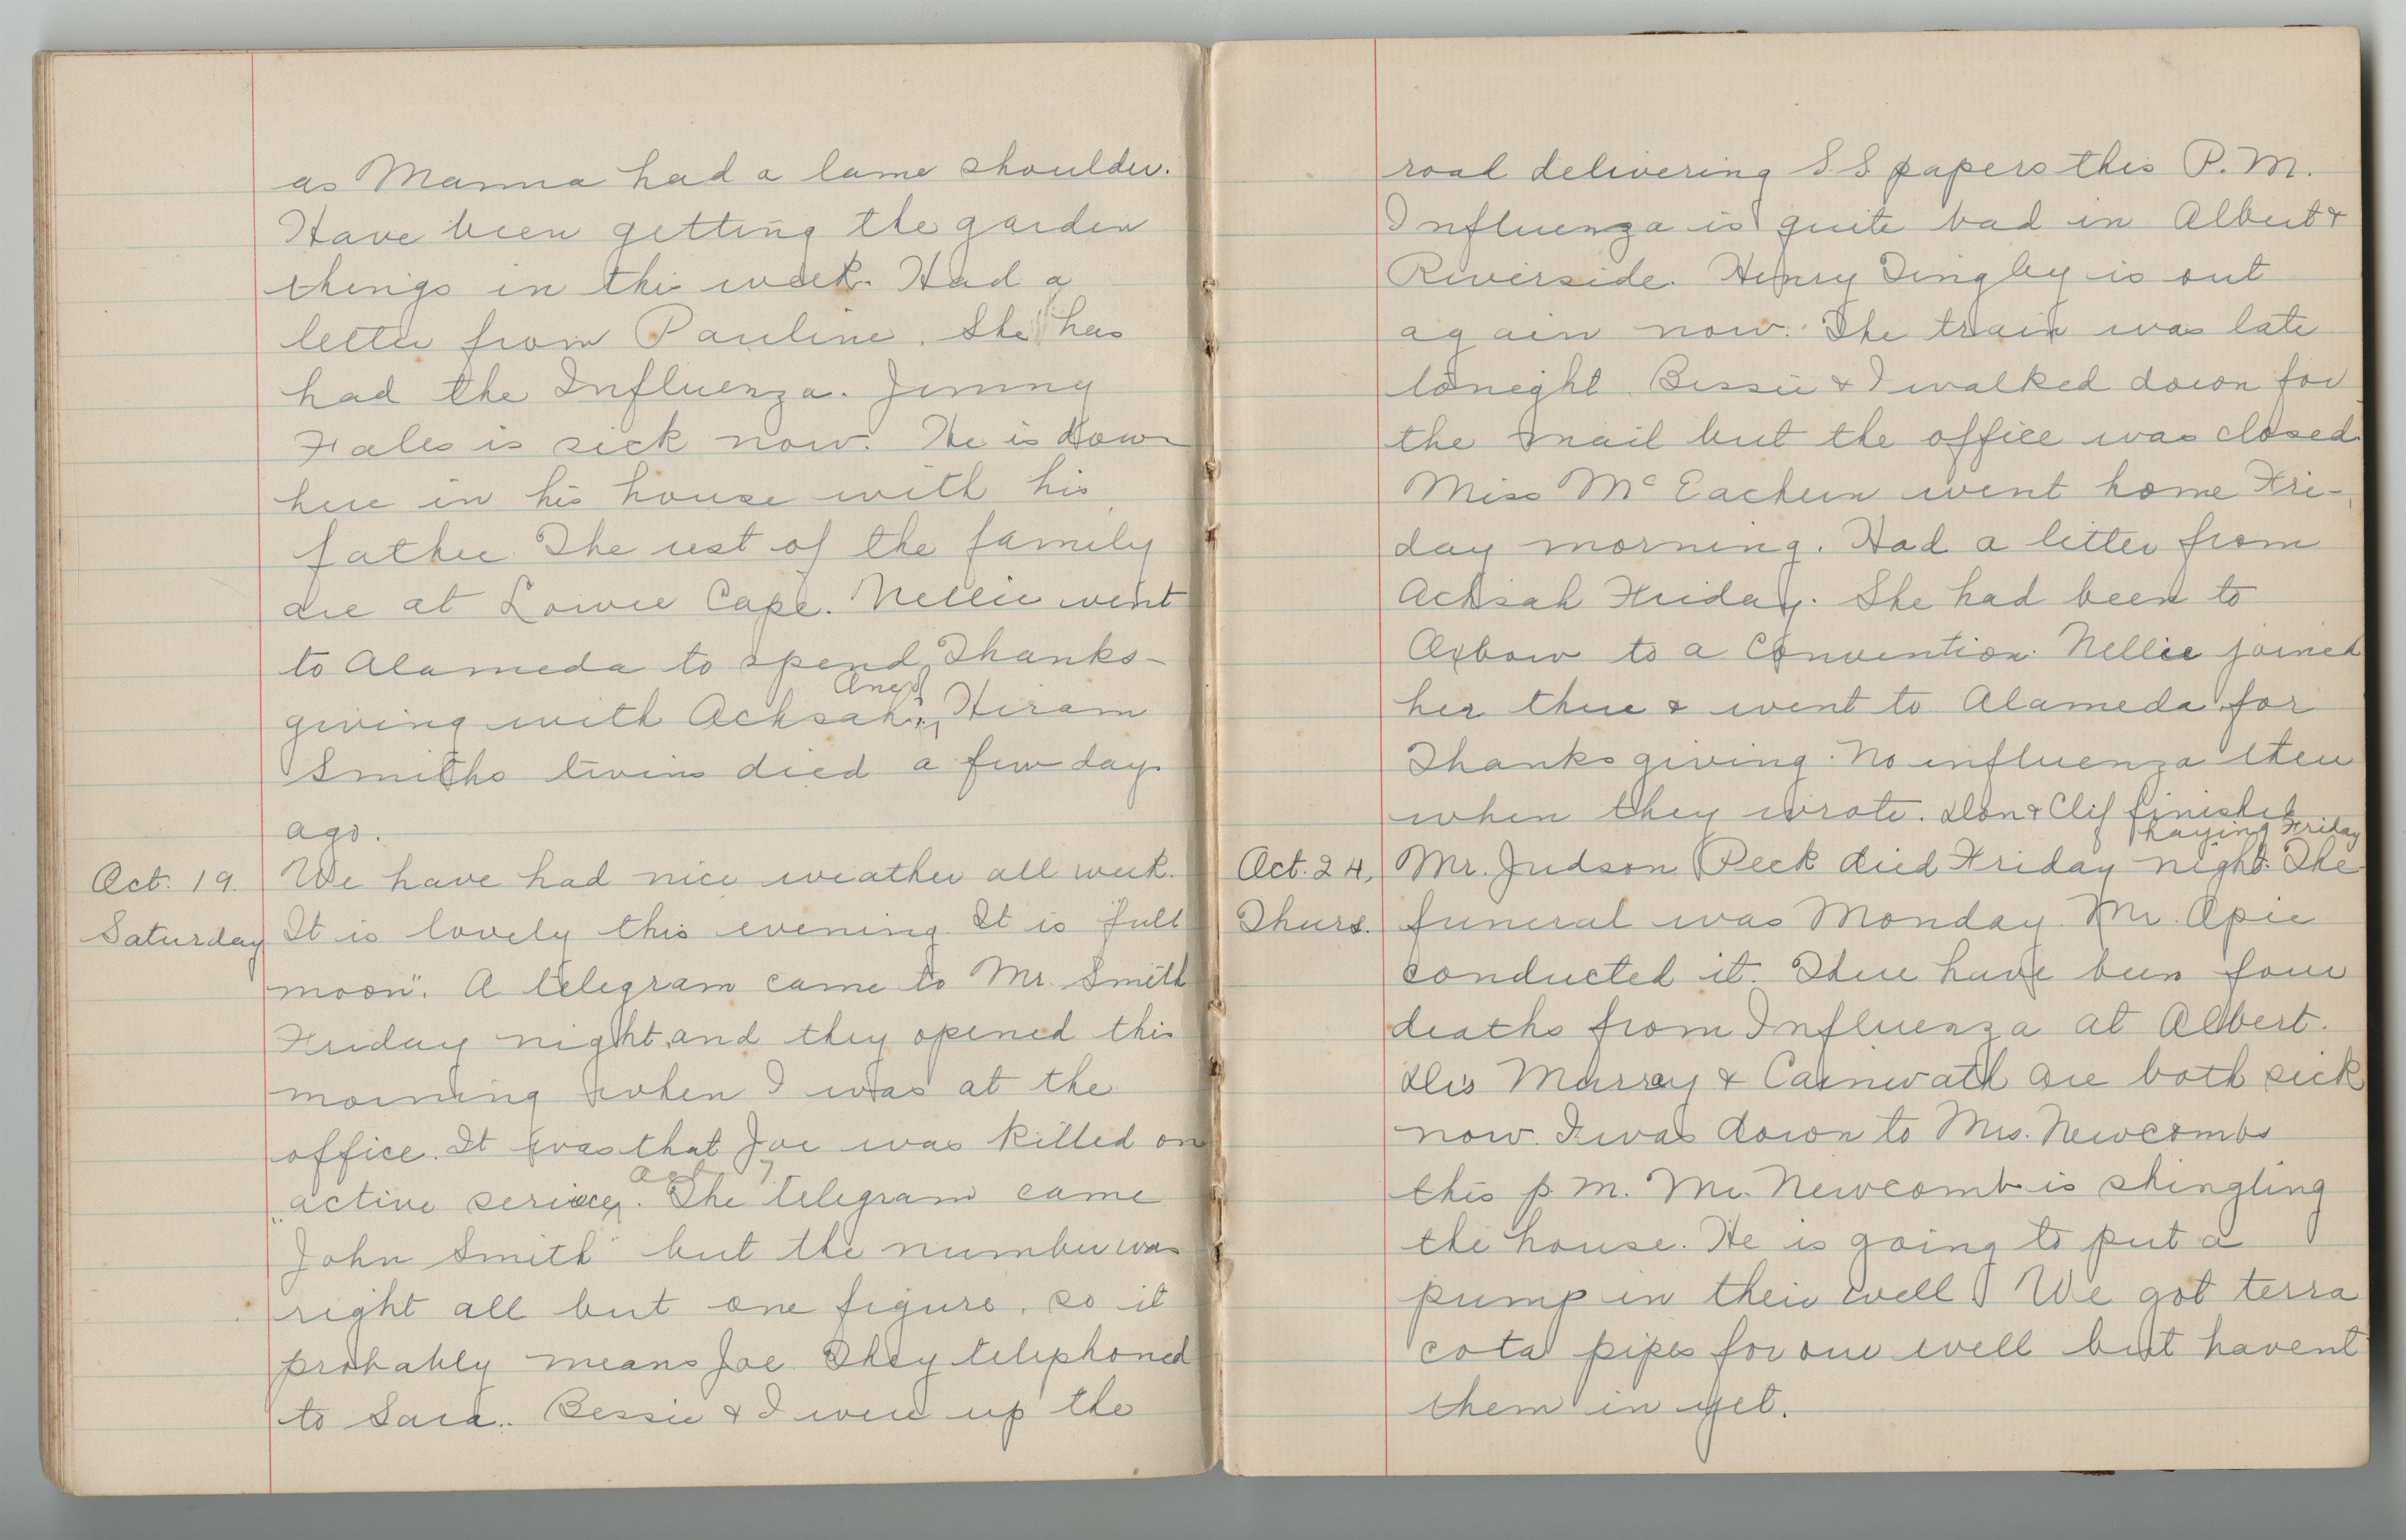 as Mamma had a lame shoulder.
Have been getting the garden
things in this week. Had a
letter from Pauline. She has
had the Influenza. Jimmy
Fales is sick now. He is down
here in his house with his
father The rest of the family
are at Lower Cape. Nellie went
to Alameda to spend Thanks-
giving with Acksah. and Hiram
Smiths twins died a few days
ago.
Oct. 19. We have had nice weather all week.
Saturday It is lovely this evening. It is "full
moon". A telegram came to Mr. Smith
Friday night and they opened this
morning when I was at the
office. It was that Joe was killed on
active serivce, Oct 7. The telegram came
"John Smith" but the number was
right all but one figure, so it
probably means Joe. They telephoned
to Sara. Bessie & I were up the
road delivering S.S papers this P.M.
Influenza is quite bad in Albert &
Riverside. Henry Tingley is out
again now. The train was late
tonight. Bessie & I walked down for
the mail but the office was closed.
Miss McEachern went home Fri-
day morning. Had a letter from
Acksah Friday. She had been to
Oxbow to a Convention. Nellie joined
her there & went to Alameda for
Thanksgiving. No influenza there
when they wrote. Don & Clif finished
haying Friday
Oct. 24, Mr. Judson Peck died Friday night. The
Thurs. funeral was Monday. Mr. Opie
conducted it. There have been four
deaths from Influenza at Albert.
Drs Murray & Carnwath are both sick
now. I was down to Mrs. Newcombs
this p.m. Mr. Newcomb is shingling
the house. He is going to put a
pump in their well. We got terra
cota pipes for our well but havent
them in yet.